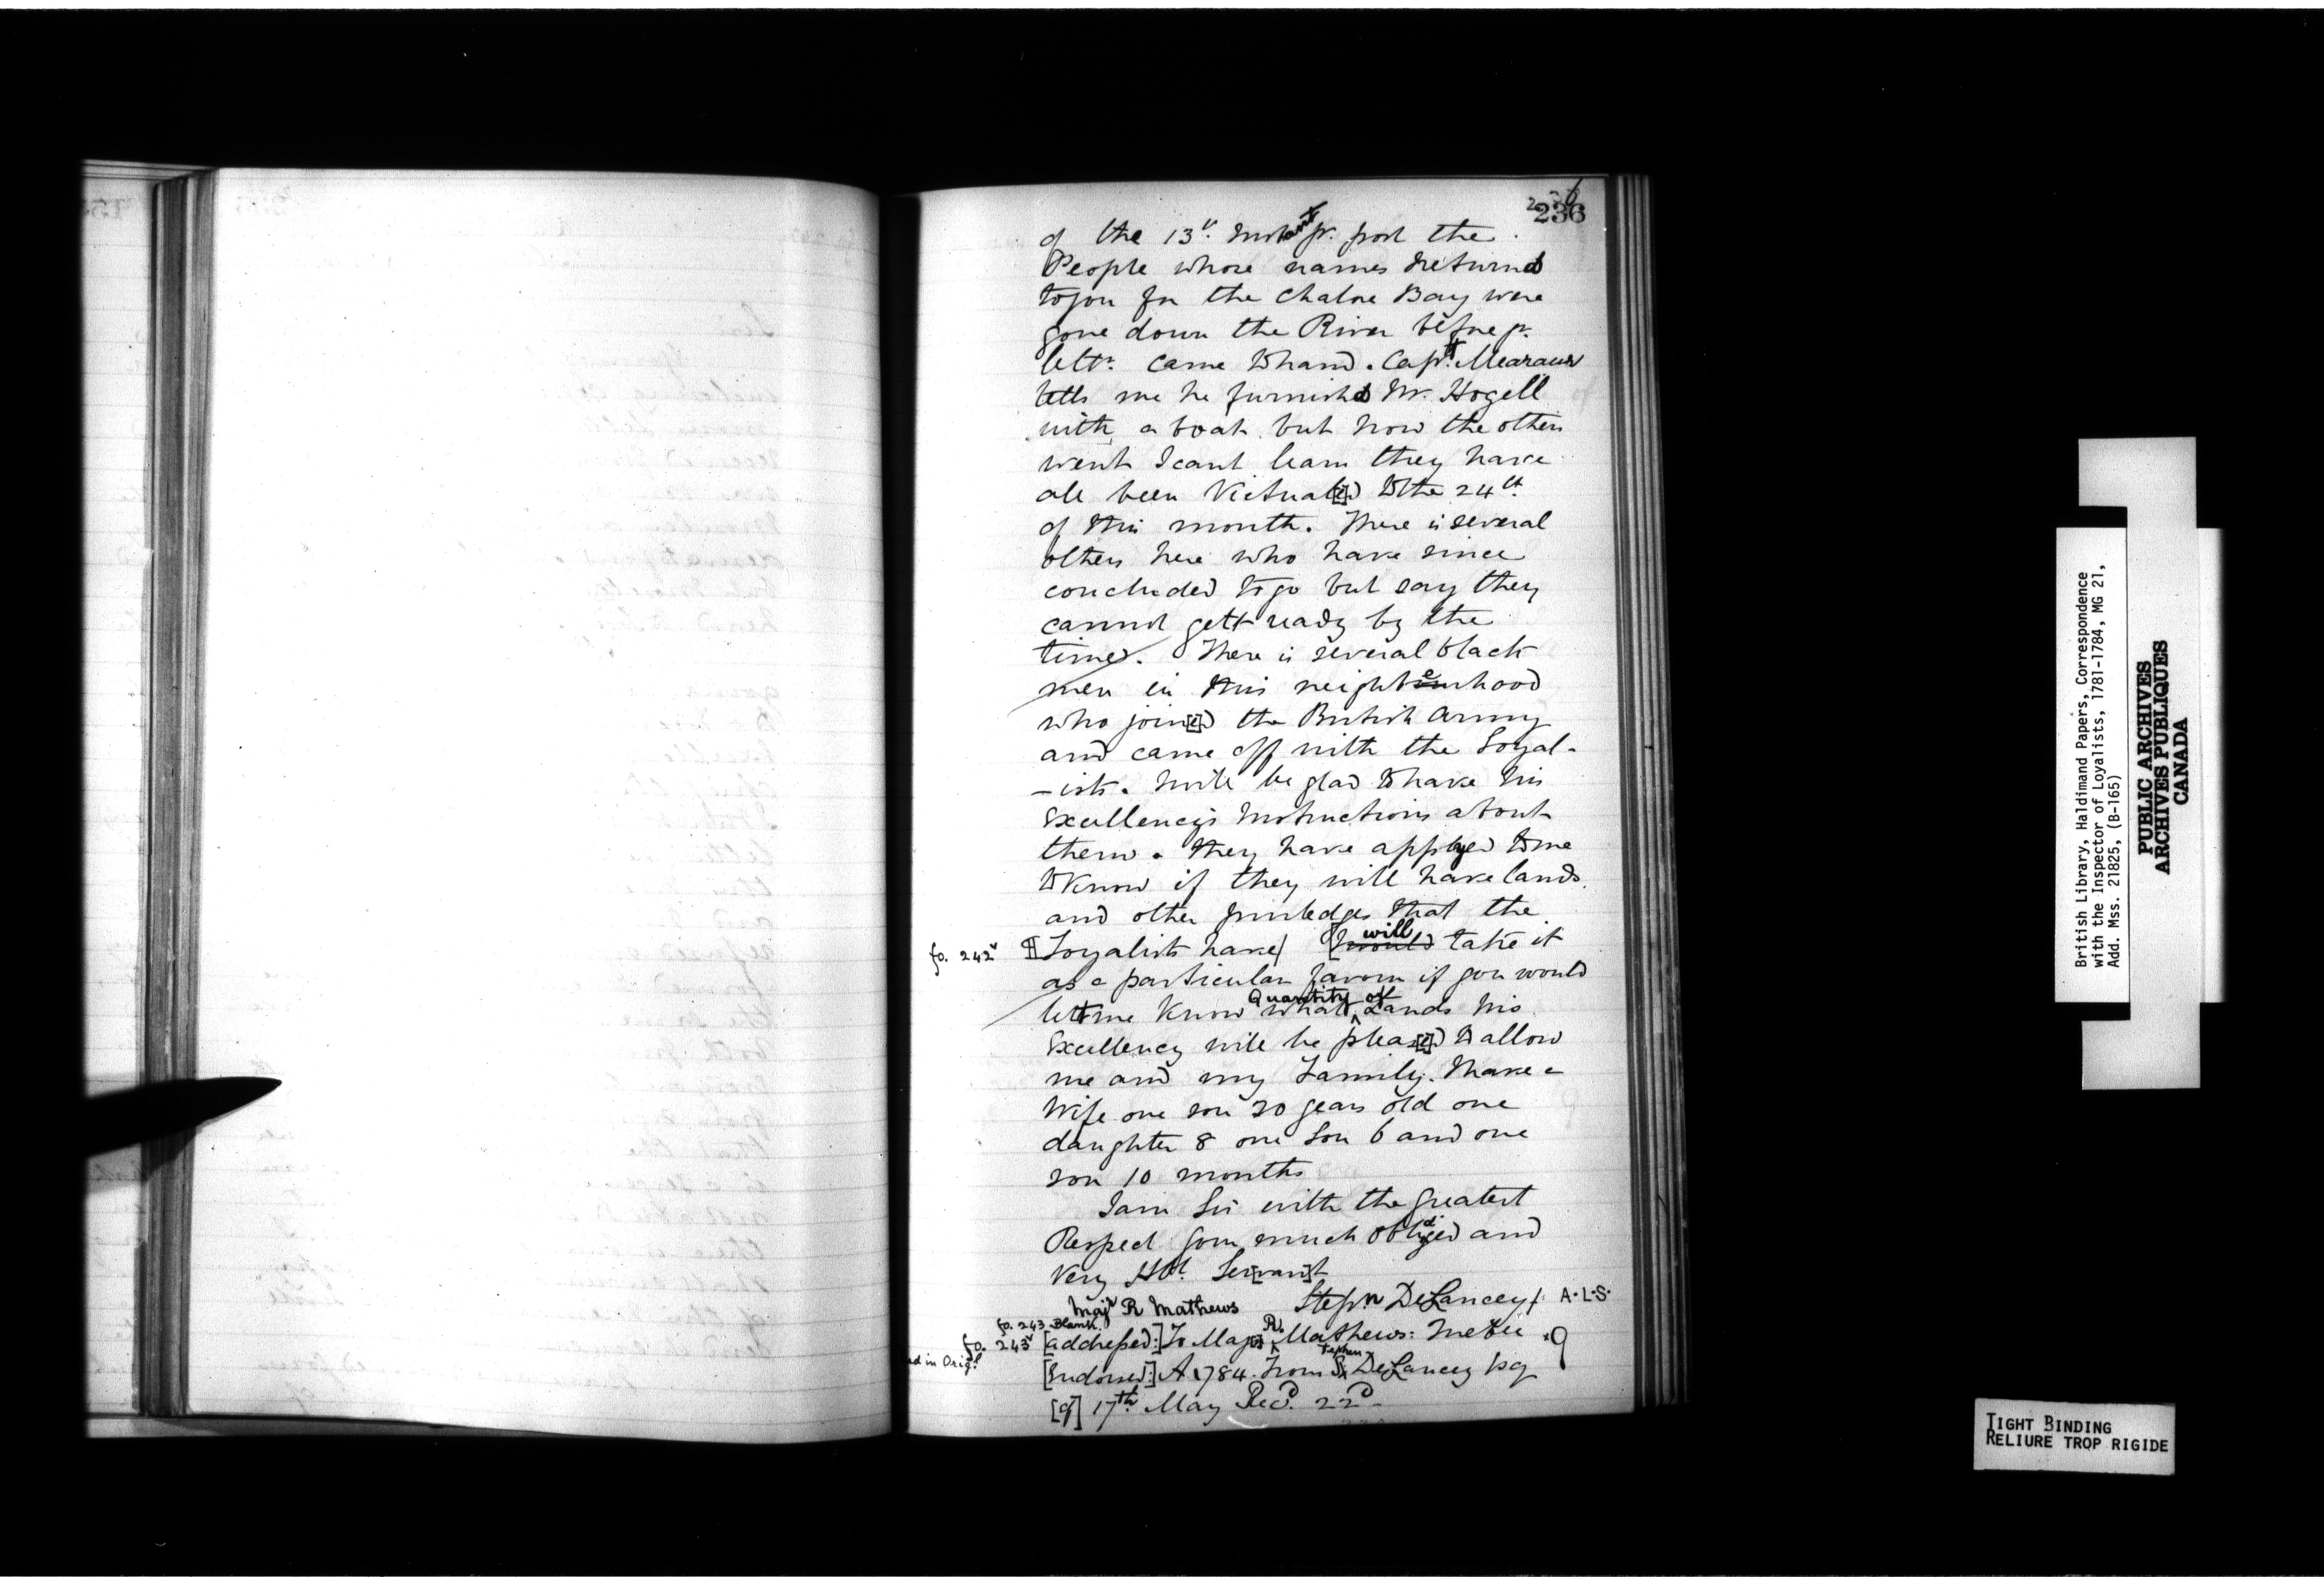 236
of the 13th. Instant pr. post the
People whose names I returnd
to you for the Chalue Bay were
gone down the River before yr.
lettr. came to hand. Captt. Mearaus
tells me he furnishd Mr. Hogell
with a boat but how the others
went I cant learn they have
all been Victual[e]d to the 24th.
of this month. There is several
others here who have since
concluded to go but say they
cannot gett ready by the
time. There is several black
men in this neighberhood
who join[e]d the British Army
and came off with the Loyal-
-ists. I will be glad to have his
Excellency's Instructions about
them. they have applyed to me
to know if they will have lands
and other priviledges that the
fo. 242v Loyalists have / I will take it
as a particular favour if you would
lett me know what Quantity of Lands his
Excellency will be pleas[e]d to allow
me and my Family. I have a
Wife one son 20 years old one
daughter 8 one Son 6 and one
son 10 months
I am Sir with the greatest
Respect your much oblidged and
Very Hbl. Ser[van]t
Majr R Mathews Stepn DeLancey /. A.L.S.
fo. 243 Blank.
fo. 243v [addressed:] To Major R. Mathews:
[Endorsed:] A 1784. From Stephen DeLancey Esq
[of] 17th. May Recd. 22d.
British Library, Haldimand Papers, Correspondence
with the Inspector of Loyalists, 1781-1784, MG 21,
Add. Mss. 21825, (B-165)
PUBLIC ARCHIVES
ARCHIVES PUBLIQUES
CANADA
TIGHT BINDING
RELIURE TROP RIGIDE